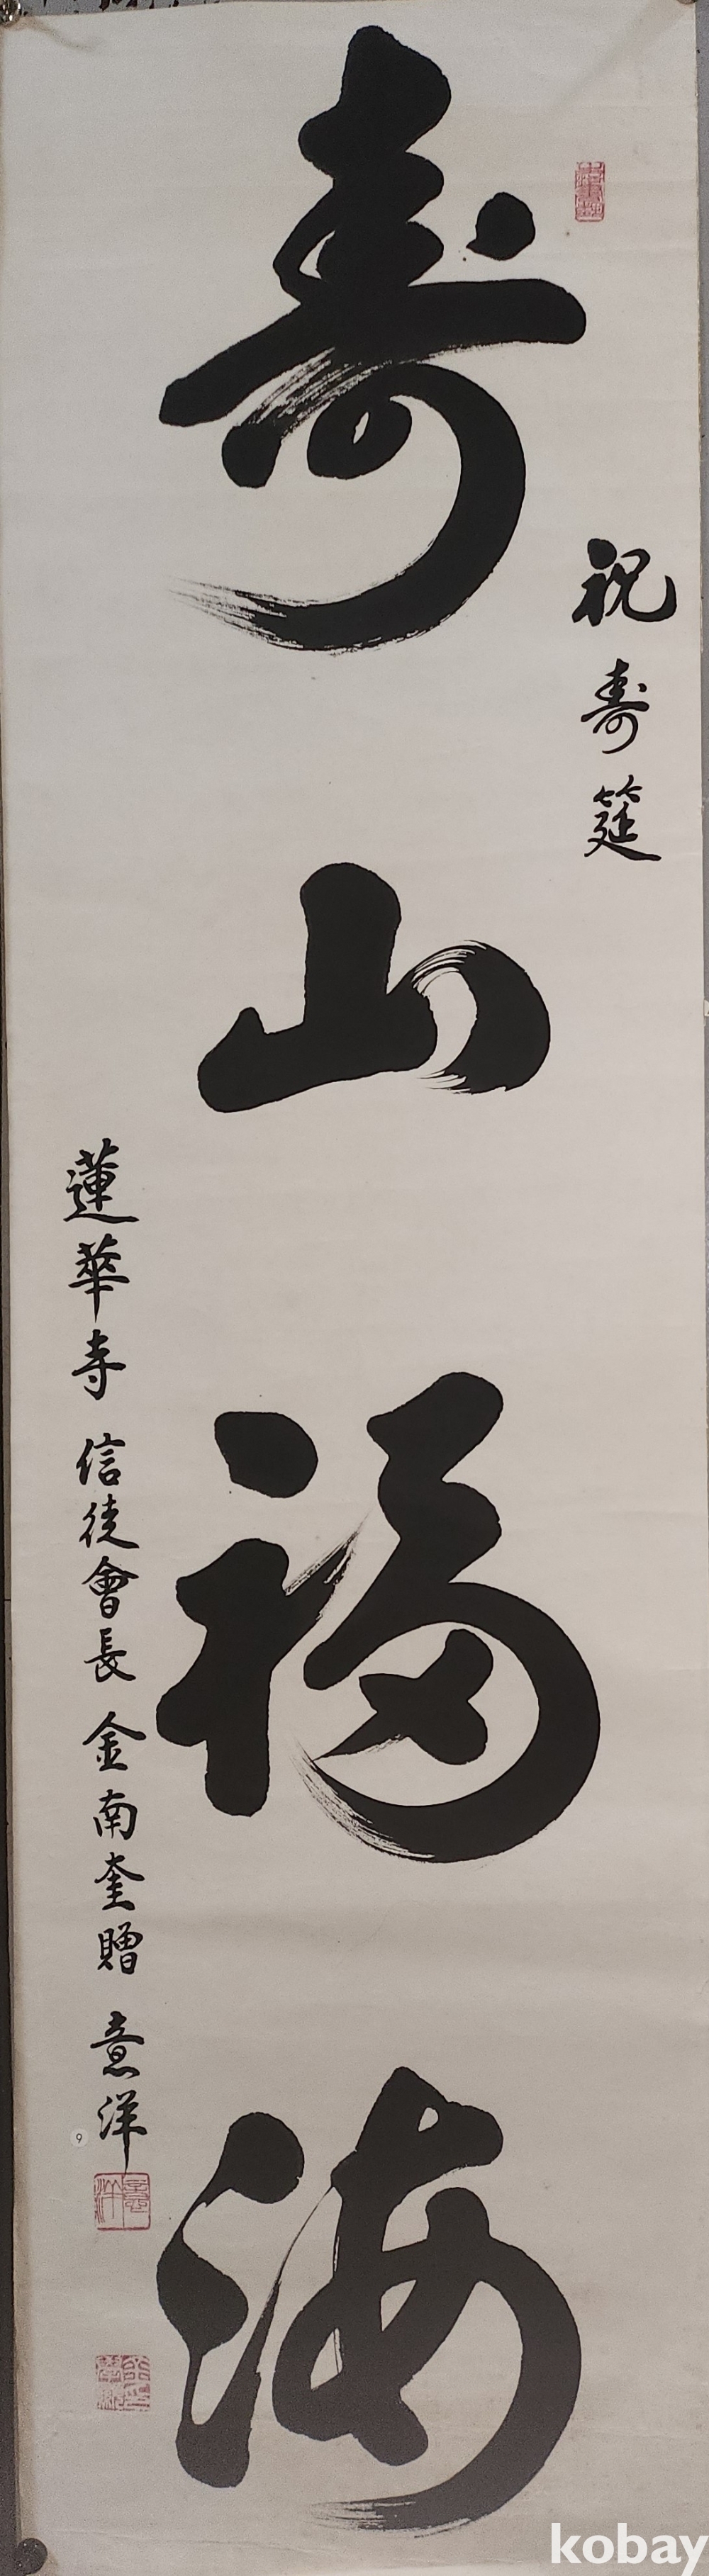 祝壽筵
壽山福海
蓮華寺 信徒會長 金南奎贈 意洋
意洋
9
kobay